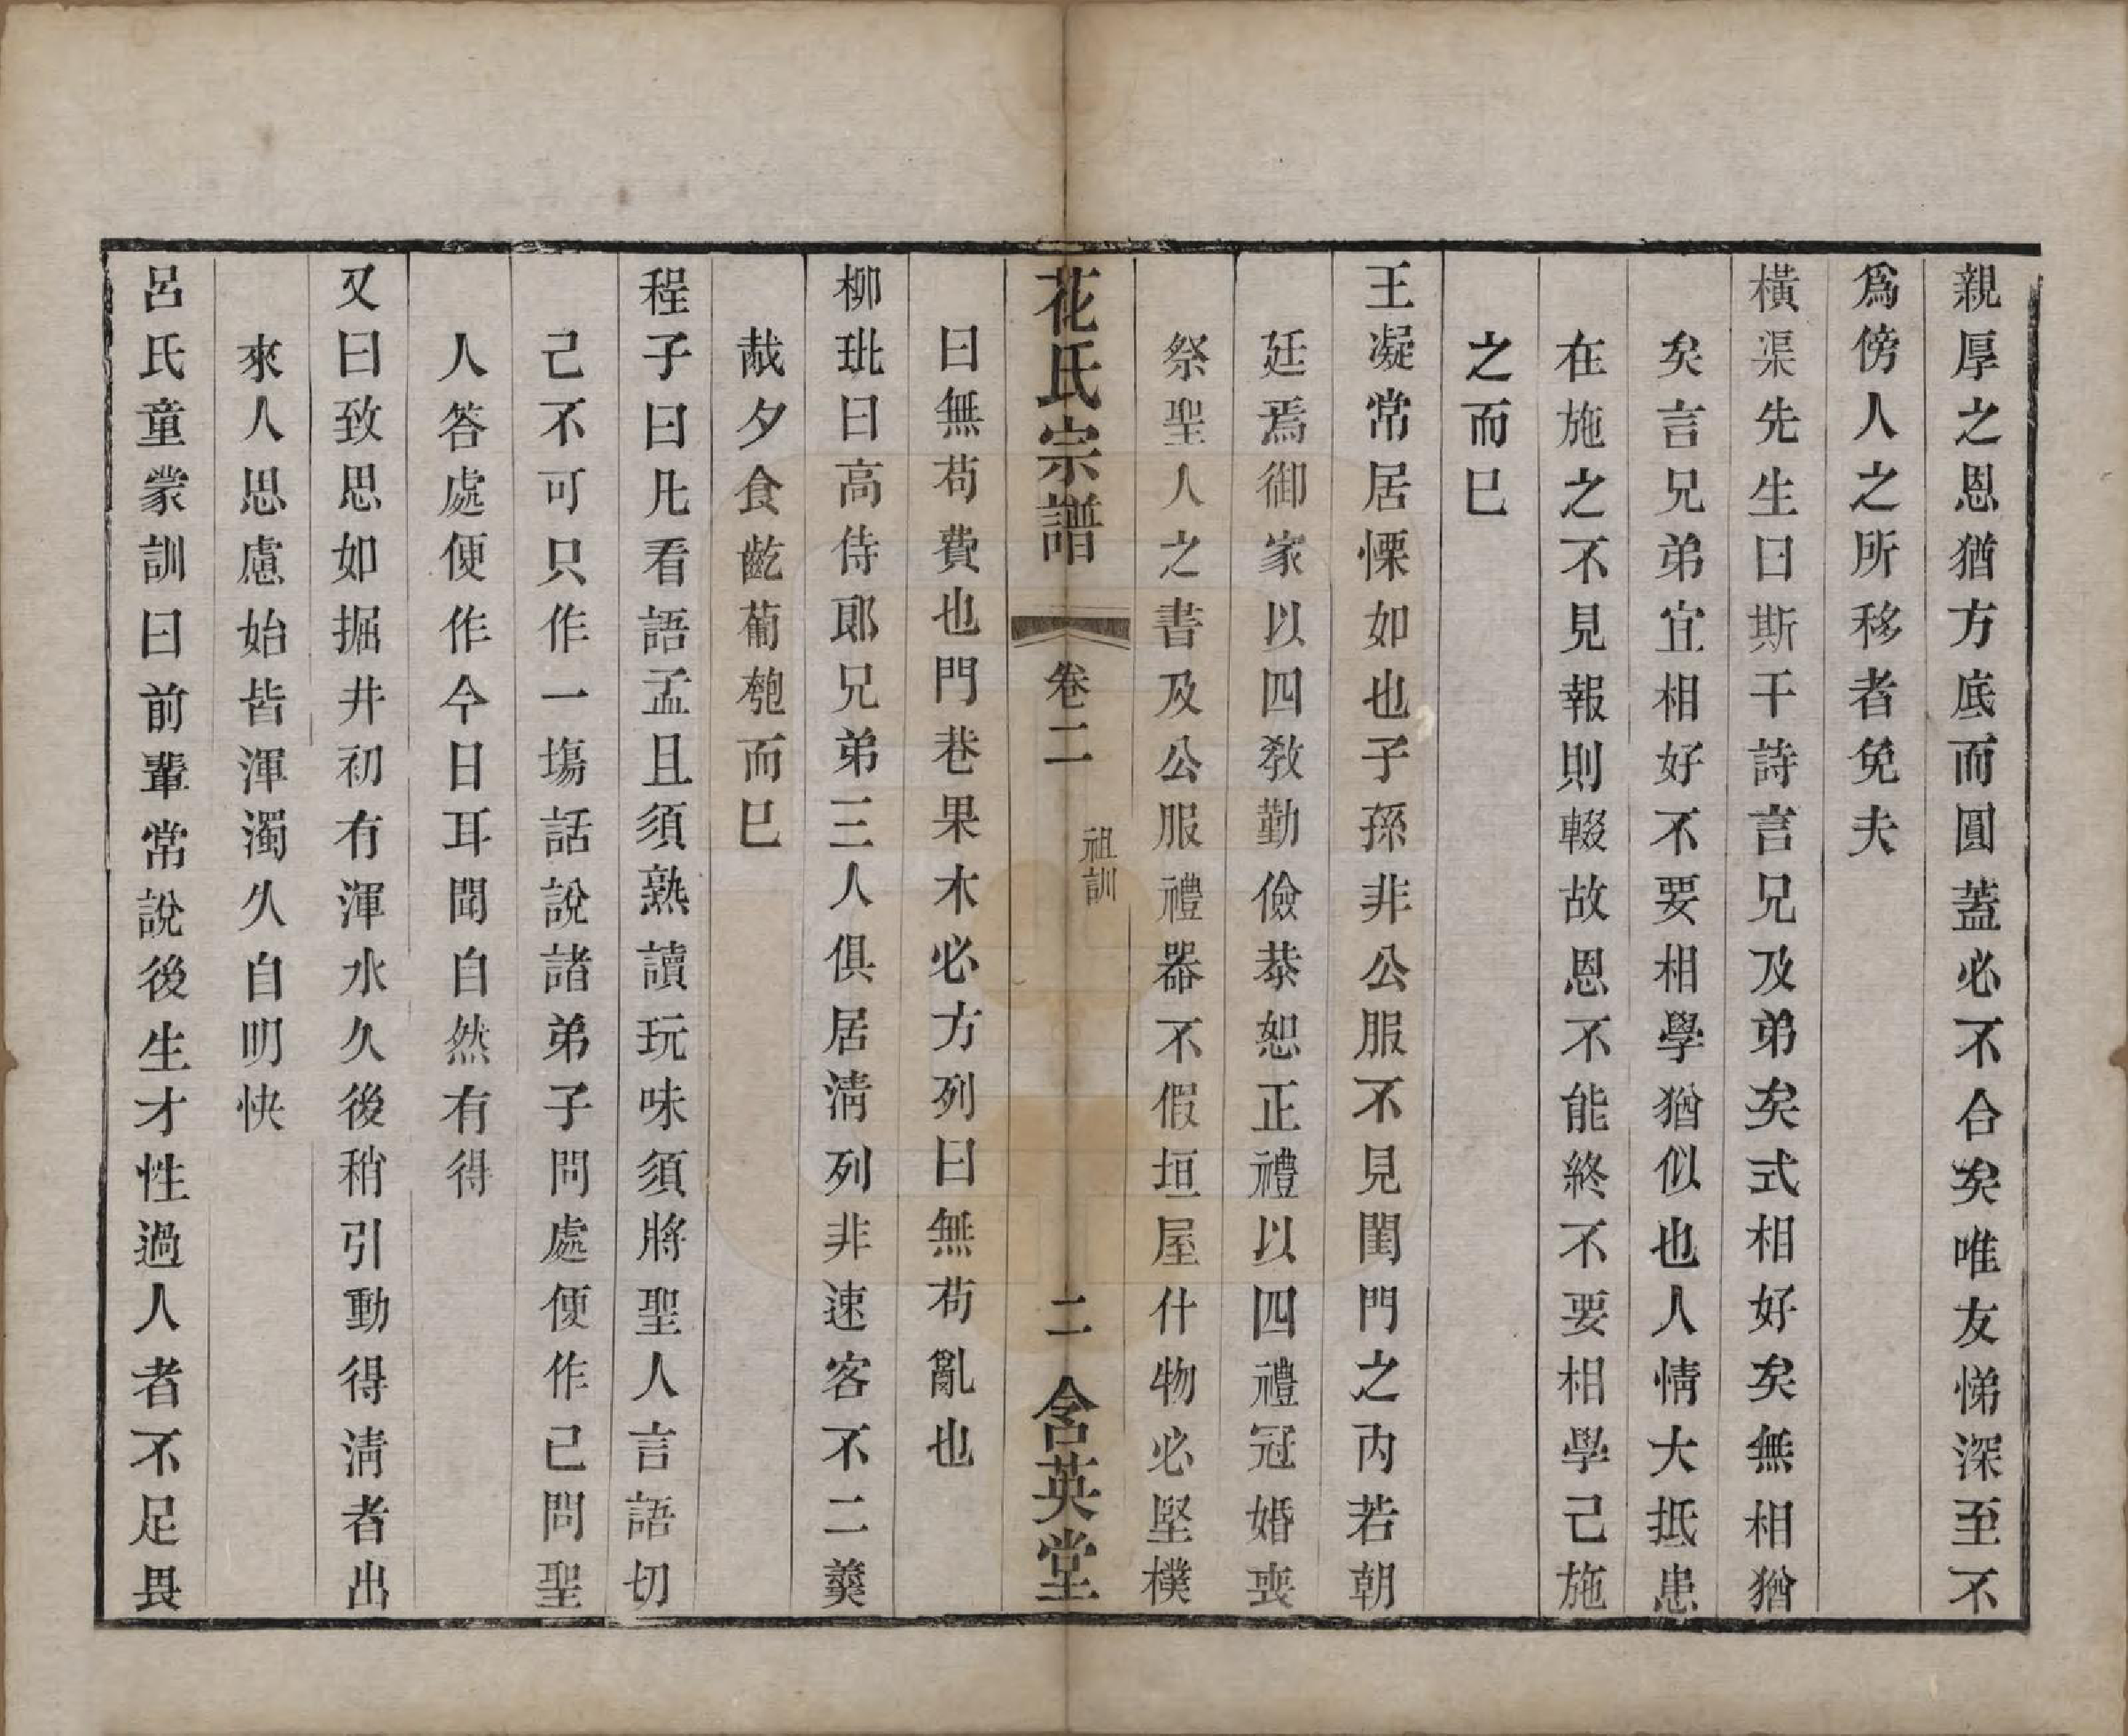 親厚之恩猶方底而圓蓋必不合矣唯友悌深至不
爲傍人之所移者免夫
橫渠先生曰斯干詩言兄及弟矣式相好矣無相猶
矣言兄弟宜相好不要相學猶似也人情大抵患
在施之不見報則輟故恩不能終不要相學己施
之而已
王凝常居慄如也子孫非公服不見閨門之內若朝
廷焉御家以四敎勤儉恭恕正禮以四禮冠婚喪
祭聖人之書及公服禮器不假垣屋什物必堅樸
花氏宗譜 卷二 祖訓 二 含英堂
曰無苟費也門巷果木必方列曰無苟亂也
柳玭曰高侍郞兄弟三人俱居淸列非速客不二羹
胾夕食齕蔔匏而已
程子曰凡看語孟且須熟讀玩味須將聖人言語切
己不可只作一塲話說諸弟子問處便作己問聖
人答處便作今日耳聞自然有得
又曰致思如掘井初有渾水久後稍引動得淸者出
來人思慮始皆渾濁久自明快
呂氏童蒙訓曰前輩常說後生才性過人者不足畏